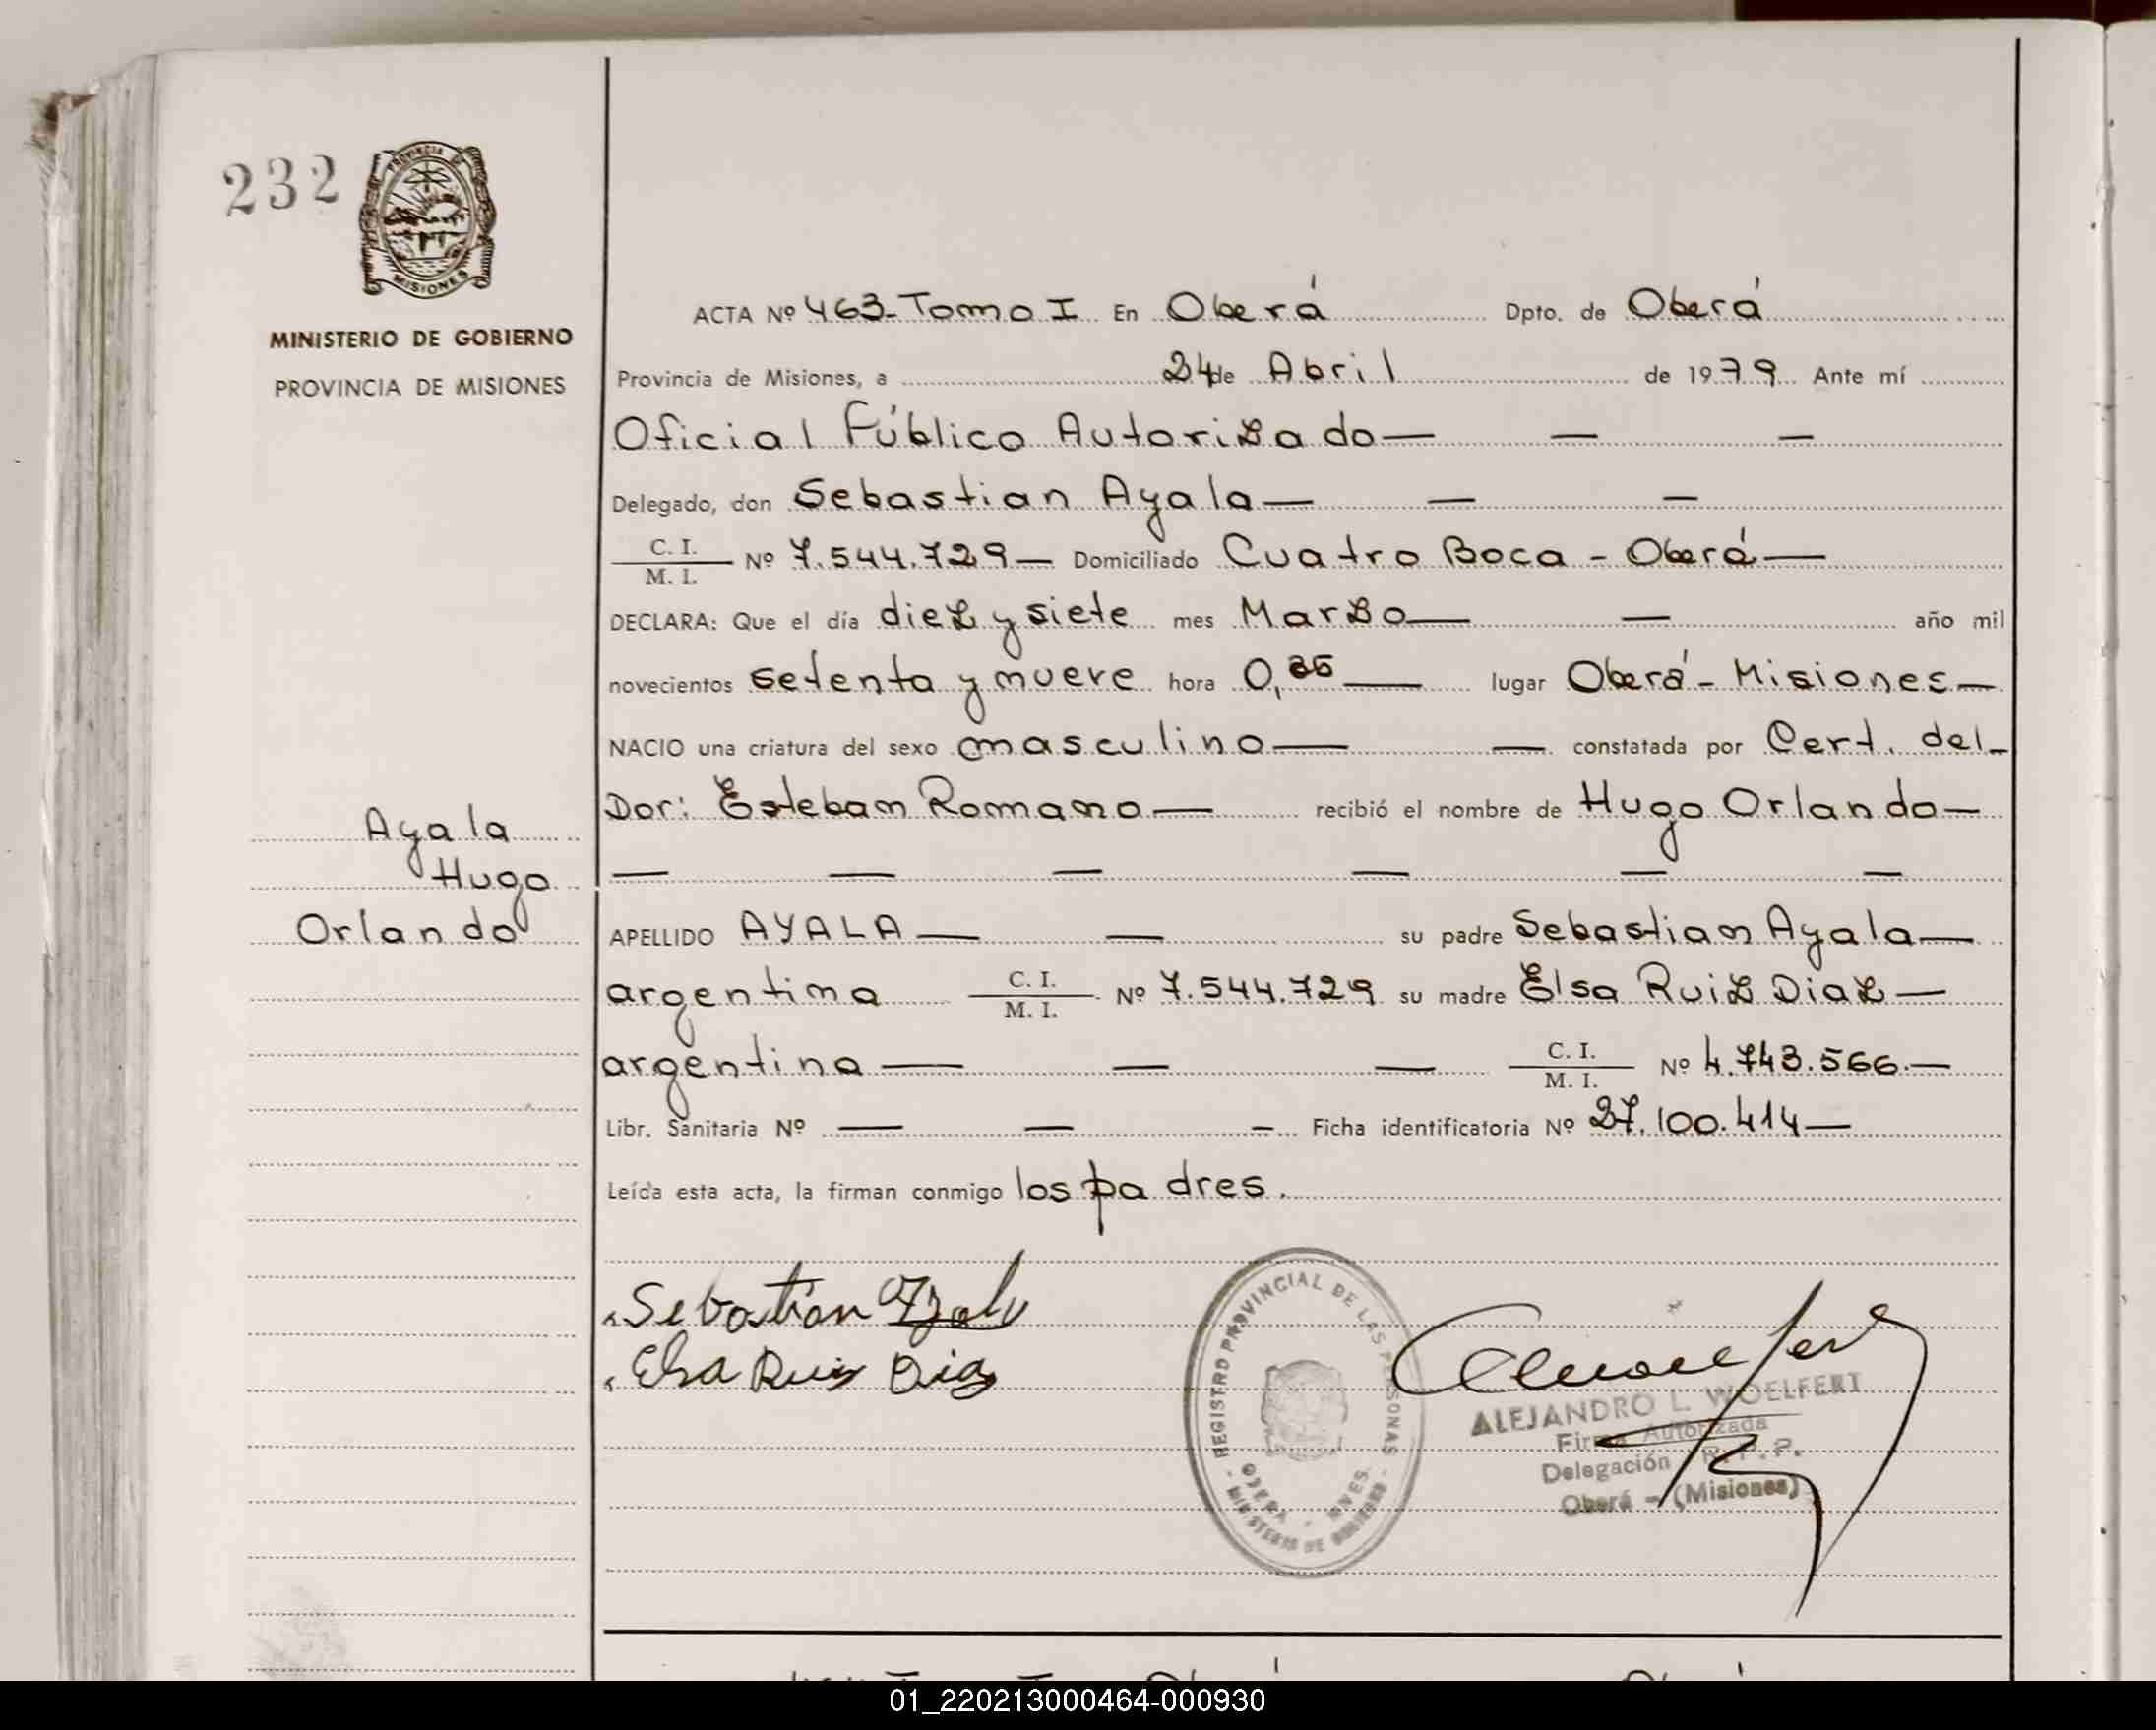 232
PROVINCIA DE
MISIONES
MINISTERIO DE GOBIERNO
PROVINCIA DE MISIONES
ACTA Nº 463- Tomo I En Oberá Dpto. de Oberá
Provincia de Misiones, a 24 de Abril de 1979 Ante mí
Oficial Público Autorizado — — —
Delegado, don Sebastian Ayala — — —
C. I.
M. I. Nº 7.544.729 — Domiciliado Cuatro Boca - Oberá —
DECLARA: Que el día diez y siete mes Marzo — — año mil
novecientos setenta y nueve hora 0, — lugar Oberá - Misiones —
NACIO una criatura del sexo masculino — — constatada por Cert. del-
Dor: Esteban Romano — recibió el nombre de Hugo Orlando —
— — — — — —
Ayala
Hugo
Orlando
APELLIDO AYALA — — su padre Sebastian Ayala —
argentina C. I.
M. I. Nº 7.544.729 su madre Elsa Ruiz Diaz —
argentina — — — C. I.
M. I. Nº 4.743.566. —
Libr. Sanitaria Nº — — — Ficha identificatoria Nº 27.100.414 —
Leída esta acta, la firman conmigo los padres.
Sebastian Ayala
Elsa Ruiz Diaz
REGISTRO PROVINCIAL DE LAS PERSONAS
OBERA - MNES.
MINISTERIO DE GOBIERNO
ALEJANDRO L. WOELFERT
Firma Autorizada
Delegación R. P. P.
Oberá - (Misiones)
01_220213000464-000930